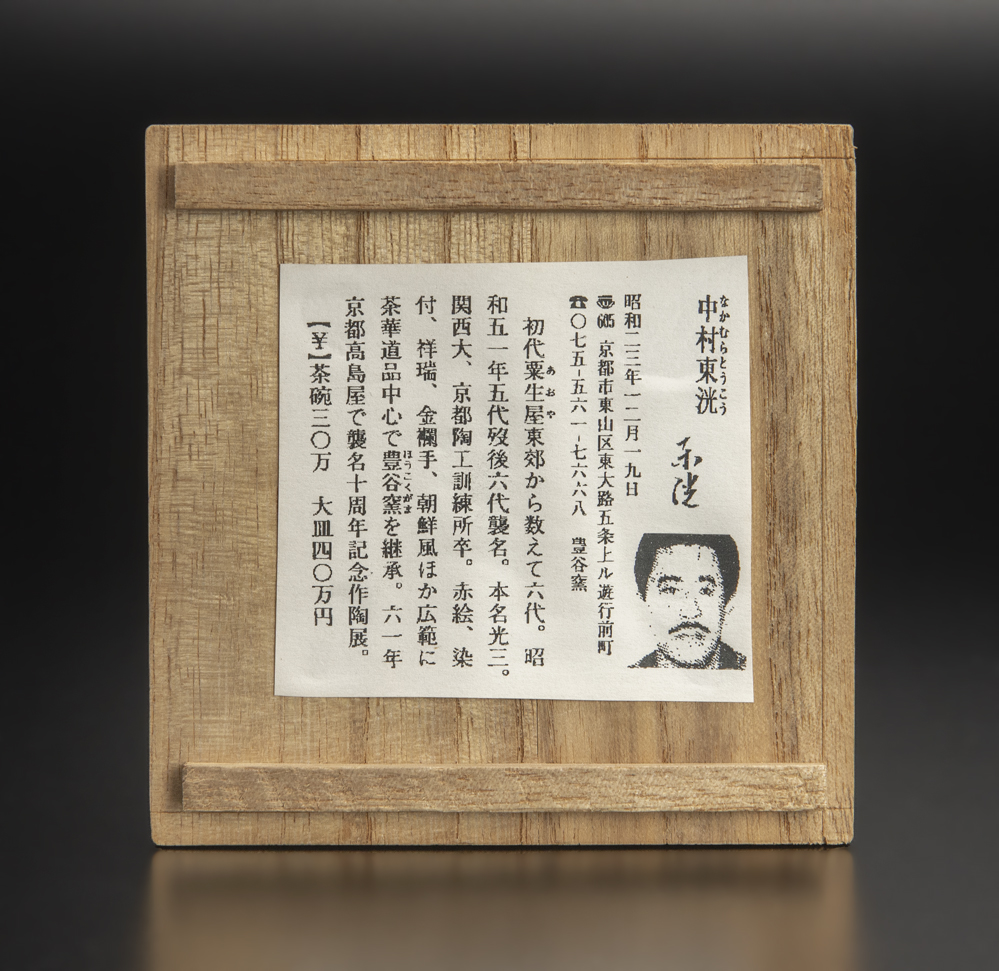 中村東洸
なかむらとうこう
昭和二三年一二月一九日
〒605 京都市東山区東大路五条上ル遊行前町
☎〇七五-五六一-七六六八 豊谷窯
初代粟生屋東郊から数えて六代。昭
あおや
和五一年五代歿後六代襲名。本名光三。
関西大、京都陶工訓練所卒。赤絵、染
付、祥瑞、金襴手、朝鮮風ほか広範に
茶華道品中心で豊谷窯を継承。六一年
ほうこくがま
京都高島屋で襲名十周年記念作陶展。
【¥】茶碗三〇万 大皿四〇万円